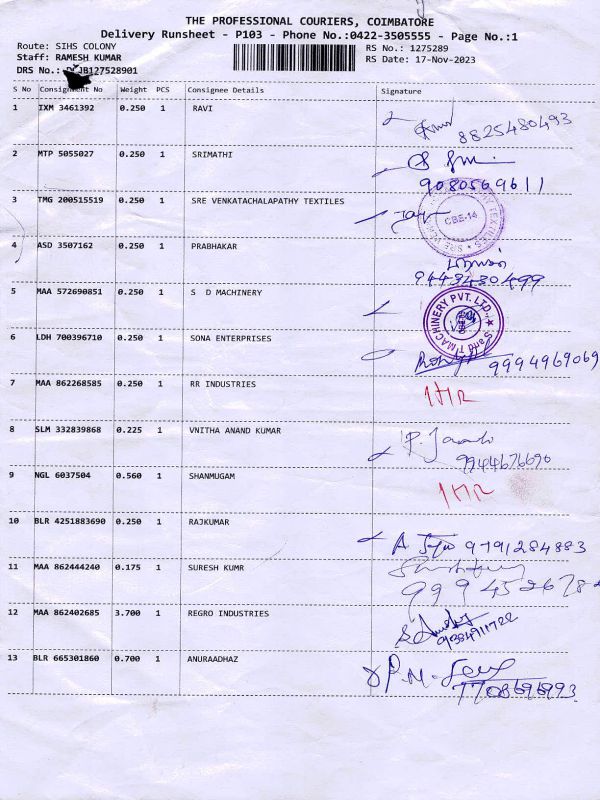 THE PROFESSIONAL COURIERS, COIMBATORE
Delivery Runsheet - P103 - Phone No.:0422-3505555 - Page No.:1
Route: SIHS COLONY
RS No.: 1275289
Staff: RAMESH KUMAR
RS Date: 17-Nov-2023
DRS No.: JB127528901
S No Consignment No Weight PCS Consignee Details Signature
1 IXM 3461392 0.250 1 RAVI
8825480493
2 MTP 5055027 0.250 1 SRIMATHI
9080569611
3 TMG 200515519 0.250 1 SRE VENKATACHALAPATHY TEXTILES
CBE-14
4 ASD 3507162 0.250 1 PRABHAKAR
9443430499
5 MAA 572690851 0.250 1 S D MACHINERY
S and T MACHINERY PVT. LTD.
6 LDH 700396710 0.250 1 SONA ENTERPRISES
9994969069
7 MAA 862268585 0.250 1 RR INDUSTRIES
8 SLM 332839868 0.225 1 VNITHA ANAND KUMAR
9944676690
9 NGL 6037504 0.560 1 SHANMUGAM
10 BLR 4251883690 0.250 1 RAJKUMAR
9791284883
11 MAA 862444240 0.175 1 SURESH KUMR
12 MAA 862402685 3.700 1 REGRO INDUSTRIES
13 BLR 665301860 0.700 1 ANURAADHAZ
7708696993